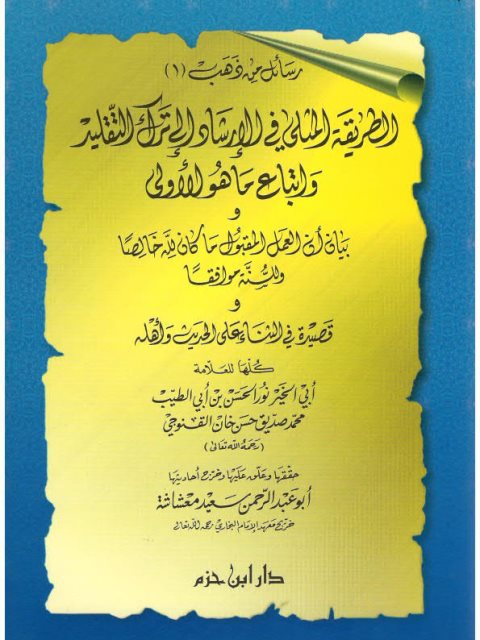 رسائل من ذهب (١)
الطريقة المثلى في الإرشاد إلى ترك التقليد
واتباع ما هو الأولى
و
بيان أن العمل المقبول ما كان لله خالصًا
وللسُّنَّة موافقًا
و
قصيدة في الثناء على الحديث وأهله
كُلّهَا للعَلّامة
أبي الخَير نُور الحَسَن بن أبي الطيّب
محمد صدّيق حسَن خان القنوجي
(رَحمَهُ الله تعَالى)
حققها وعلق عليها وخرج أحاديثها
أبو عَبد الرّحمن سَعيد معشاشة
خريج معهد الإمام البخاري رحمه الله تعالى
دار ابن حزم